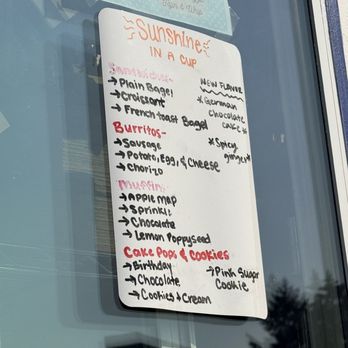 Sunshine
IN A CUP
Sandwiches-
→ Plain Bagel
→ Croissant
→ French toast Bagel
NEW FLAVOR
* German
chocolate
cake *
* Spicy
ginger *
Burritos-
→ Sausage
→ Potato, Egg, & Cheese
→ Chorizo
Muffin-
→ Apple map
→ Sprinkle
→ Chocolate
→ Lemon Poppyseed
Cake Pops & Cookies
→ Birthday
→ Chocolate
→ Cookies & Cream
→ Pink Sugar
Cookie